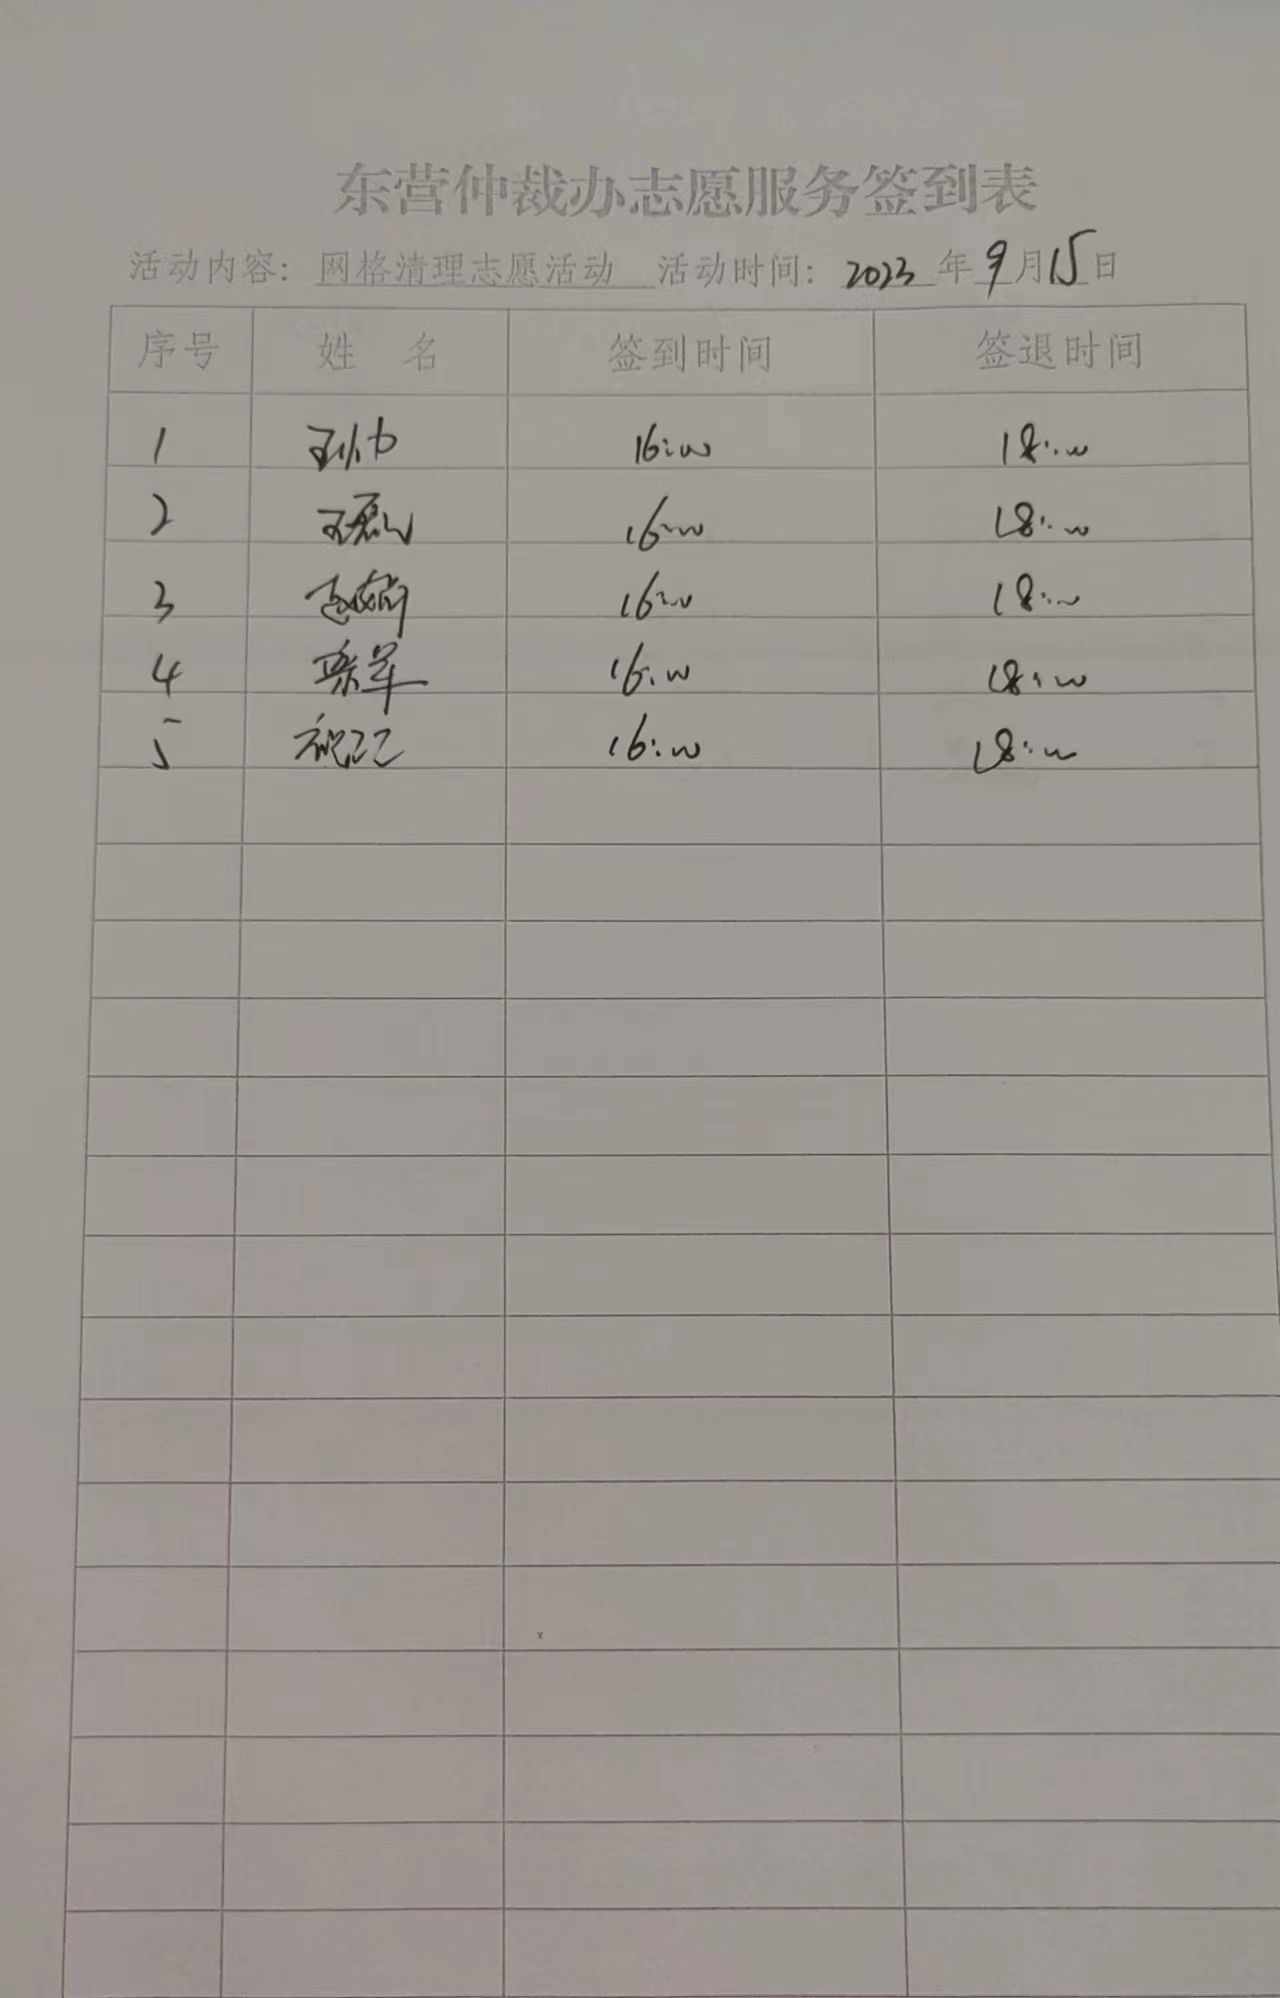 东营仲裁办志愿服务签到表
活动内容：网格清理志愿活动 活动时间：2023年9月15日
序号 姓 名 签到时间 签退时间
1 王小力 16:00 18:00
2 王磊 16:00 18:00
3 16:00 18:00
4 栾军 16:00 18:00
5 祝 16:00 18:00